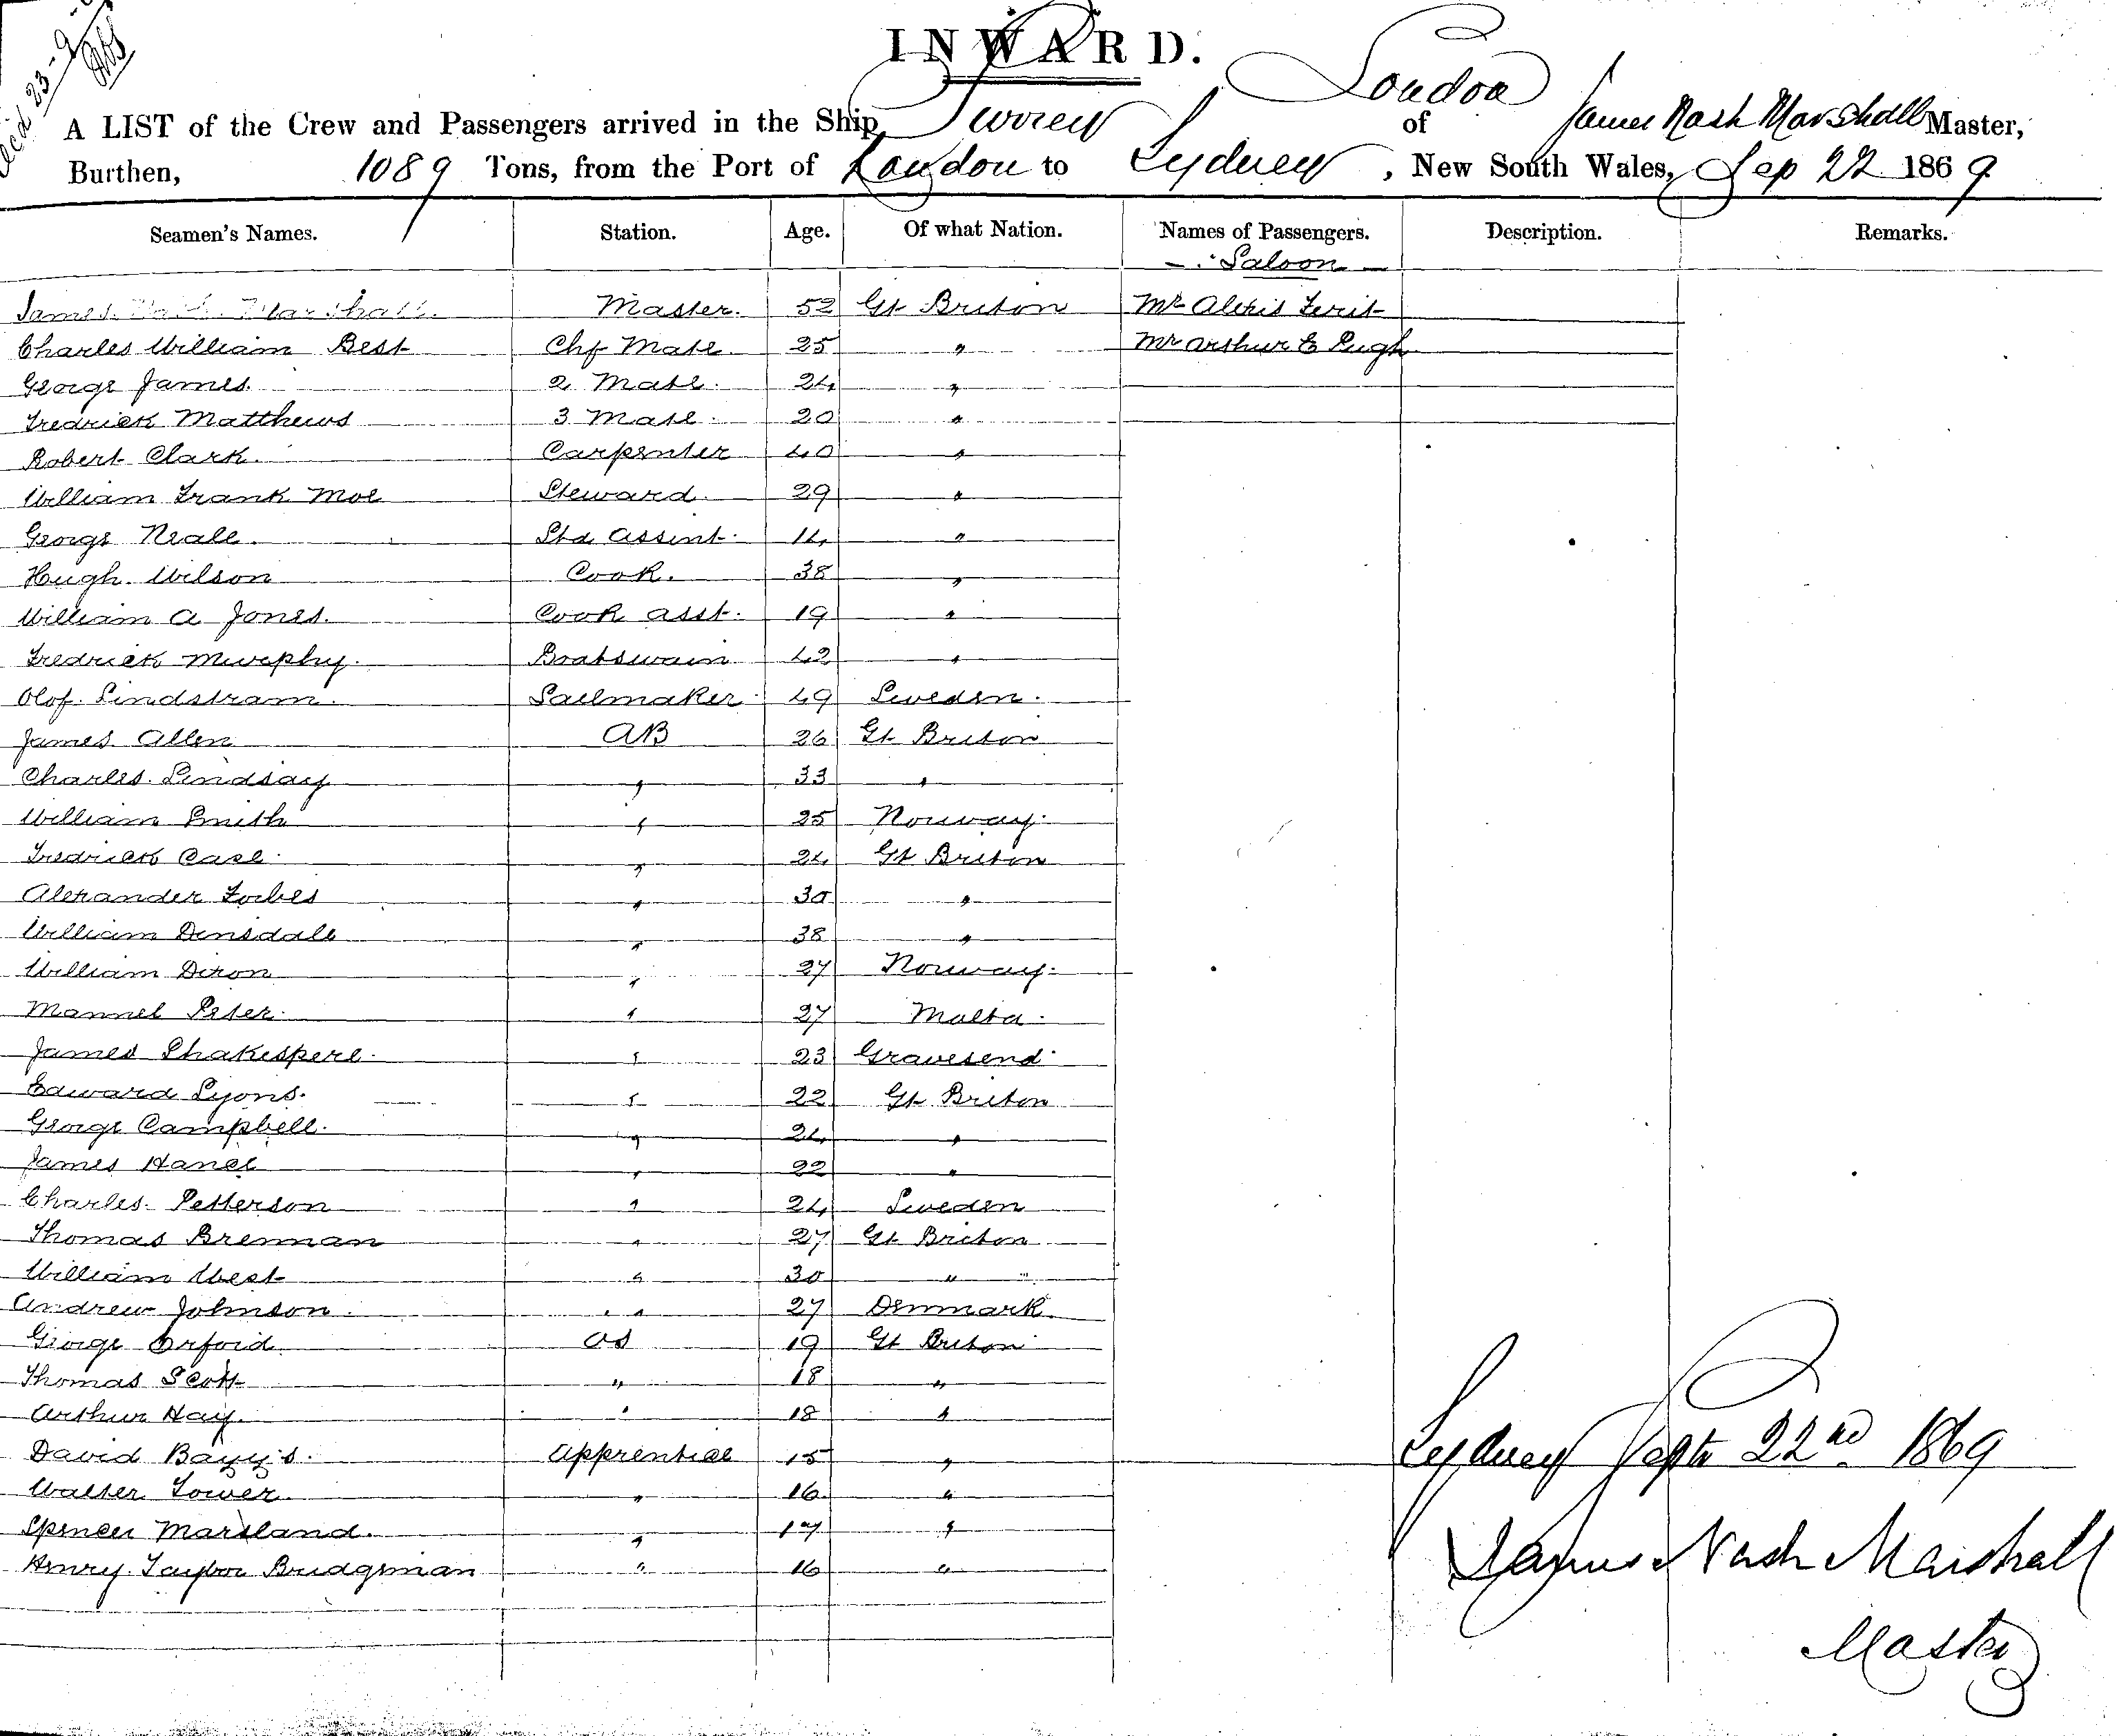 INWARD.
A LIST of the Crew and Passengers arrived in the Ship of London James Nash Marshall Master,
Burthen, 1089 Tons, from the Port of London to Sydney, New South Wales, Sep 22 1869
Seamen's Names. Station. Age. Of what Nation. Names of Passengers. Description. Remarks.
Saloon
James Nash Marshall. Master. 52 Gt Briton Mr Alexis
Charles William Best Chf Mate 25 " Mr Arthur E Pugh
George James. 2 Mate. 24 "
Fredrick Matthews 3 Mate. 20 "
Robert Clark. Carpenter 40 "
William Frank Moe Steward. 29 "
George Neale. Std Assint. 14 "
Hugh Wilson Cook. 38 "
William A Jones. Cook asst. 19 "
Fredrick Murphy. Boatswain 42 "
Olof Lindstram. Sailmaker 49 Sweden.
James Allen AB 26 Gt Briton
Charles Lindsay " 33 "
William Smith " 25 Norway.
Fredrick Case. " 24 Gt Briton
Alexander Forbes " 30 "
William Dinsdale " 38 "
William Dixon " 27 Norway.
Mannel Peter. " 27 Malta.
James Shakespere. " 23 Gravesend
Edward Lyons. " 22 Gt Briton
George Campbell. " 24 "
James Hance " 22 "
Charles Petterson " 24 Sweden
Thomas Brennan " 27 Gt Briton
William West " 30 " "
Andrew Johnson. " 27 Denmark
George Orford. OS 19 Gt Briton
Thomas Scott " 18 "
Arthur Hay. " 18 "
David Bayys. Apprentice 15 "
Walter Tower. " 16 "
Spencer Marsland. " 17 "
Henry Taylor Bridgman " 16 "
Sydney Septr 22nd 1869
James Nash Marshall
Master